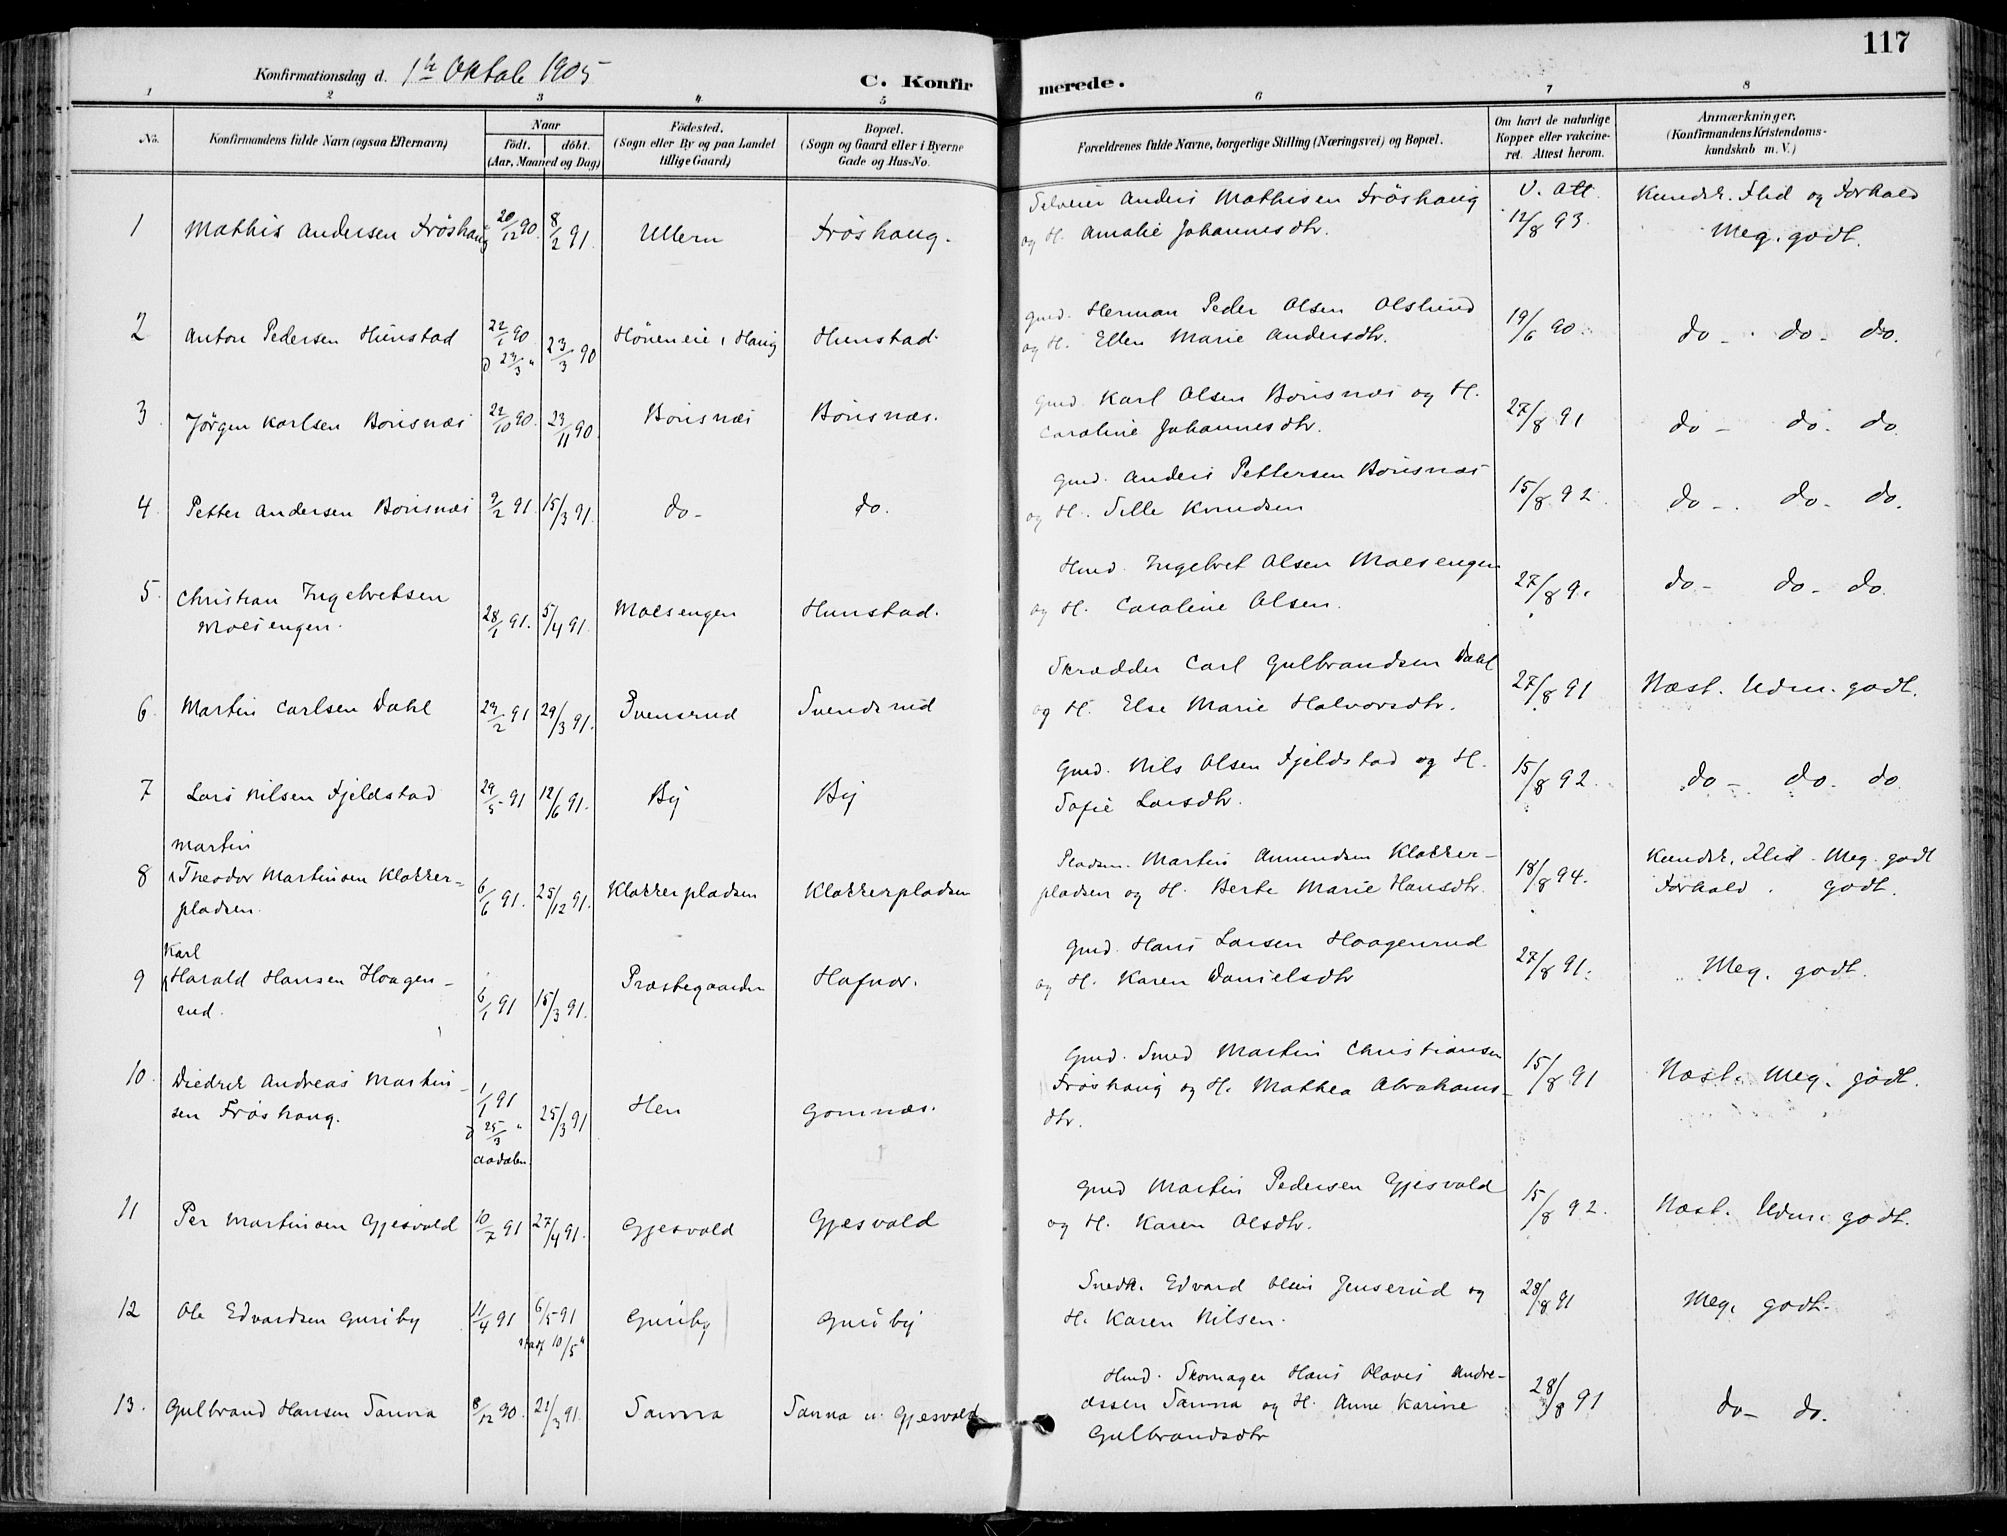 117
Konfirmationsdag d. 1ste Oktob 1905
C. Konfirmerede.
1 2 3 4 5 6 7 8
No.
Konfirmandens fulde Navn (ogsaa Efternavn)
Naar
födt. döbt.
(Aar, Maaned og Dag)
Födested.
(Sogn eller By og paa Landet
tillige Gaard)
Bopæl.
(Sogn og Gaard eller i Byerne
Gade og Hus-No.
Forældrenes fulde Navne, borgerlige Stilling (Næringsvei) og Bopæl.
Om havt de naturlige
Kopper eller vakcine-
ret. Attest herom.
Anmærkninger.
(Konfirmandens Kristendoms-
kundskab m. V.)
1 Mathis Andersen Fröshaug 20/12 90. 8/2 91. Ullern Fröshaug.
Selveier Anders Mathisen Fröshaug
og H. Amalie Johannesdtr.
V. Att
12/8 93.
Kundsk. Flid og Forhold
Meg. godt.
2 Anton Pedersen Hunstad 22/1 90 d 23/3 " 23/3 90 Höneneie, Haug Hunstad.
Gmd. Herman Peder Olsen Olslund
og H. Ellen Marie Andersdtr.
19/6 90.
do - do - do.
3 Jörgen Karlsen Bönsnæs 22/10 90. 23/11 90. Bönsnæs Bönsnæs.
Gmd. Karl Olsen Bönsnæs og H.
Caroline Johannesdtr.
27/8 91
do - do. do.
4. Petter Andersen Bönsnæs 9/2 91 15/3 91. do - do.
Gmd. Anders Pettersen Bönsnæs
og H. Sille Knudsen
15/8 92.
do - do - do.
5. Christian Ingebretsen
Moesengen. 28/1 91. 5/4 91. Moesengen Hunstad.
Hmd. Ingebret Olsen Moesengen
og H. Caroline Olsen.
27/8 91
do - do - do.
6. Martin Carlsen Dahl 23/2 91 29/3 91. Svensrud Svendsrud
Skrædder Carl Gulbrandsen Dahl
og H. Else Marie Halvorsdtr.
27/8 91
Næst. Udm. godt.
7 Lars Nilsen Fjeldstad 29/5 91 12/6 91. By By
Gmd. Nils Olsen Fjeldstad og H.
Sofie Larsdtr.
15/8 92.
do - do - do
Martin
8 Theodor Martinsen Klokker-
pladsen. 6/6 91. 25/12 91. Klokkerpladsen Klokkerpladsen
Pladsm. Martin Amundsen Klokker-
pladsen og H. Berte Marie Hansdtr.
18/8 94.
Kundsk. Flid. Meg. godt
Forhold. godt.
Karl
9 Harald Hansen Haagen-
rud. 6/1 91 15/3 91. Præstegaarden Hafnor.
Gmd. Hans Larsen Haagenrud
og H. Karen Danielsdtr
27/8 91.
Meg. godt.
10. Diedrik Andreas Martin-
sen Fröshaug. 1/1 91 d 25/3 " Aadalen. 25/3 91 Hen Gomnæs.
Gmd. Smed Martin Christiansen
Fröshaug og H. Mathea Abrahams-
dtr.
15/8 91
Næst. Meg. godt.
11 Per Martinsen Gjesvold 10/7 91 27/4 91. Gjesvold Gjesvold
Gmd Martin Pedersen Gjesvold
og H. Karen Olsdtr.
15/8 92.
Næst. Udm. godt.
12 Ole Edvardsen Guriby 11/4 91 6/5 91 10/5 " Guriby Guriby
Snedk. Edvard Olsen Jenserud og
H. Karen Nilsen.
28/8 91
Meg. godt.
13. Gulbrand Hansen Sanna 8/12 90. 22/3 91. Sanna Sanna u. Gjesvold
Hmd. Skomager Hans Olaves Andre-
assen Sanna og H. Anne Karine
Gulbrandsdtr
28/8 91
do - do.